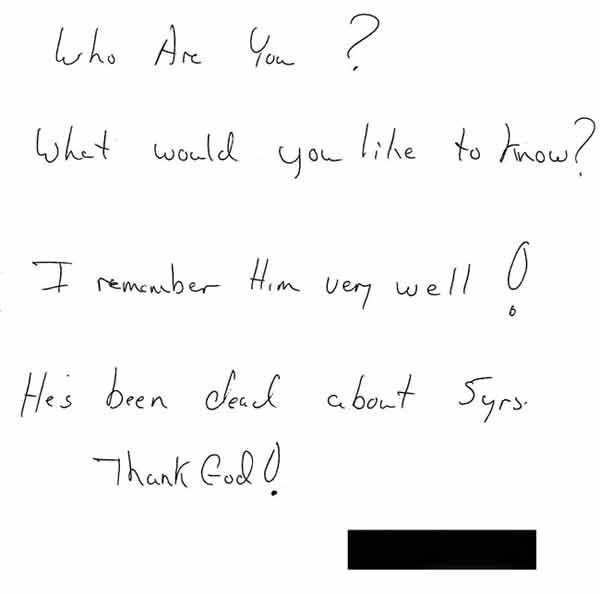 Who Are You?
What would you like to know?
I remember Him very well!
He's been dead about 5yrs.
Thank God!